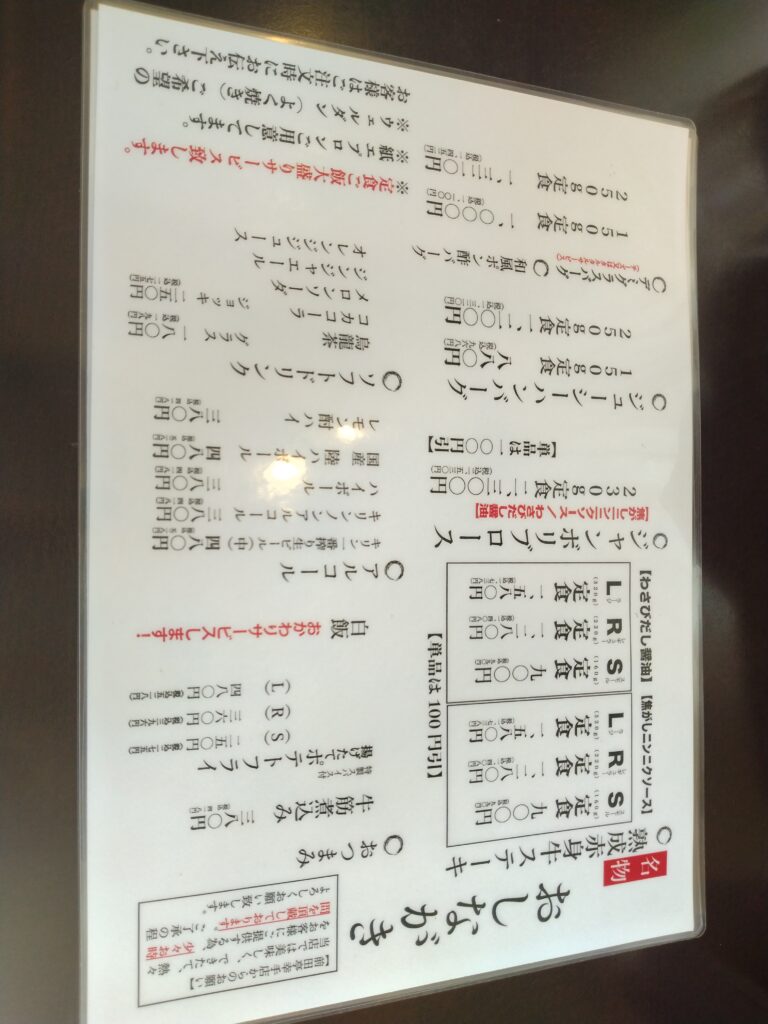 おしながき
名物
熟成赤身牛ステーキ
【焦がしニンニクソース】
S (160g) 定食 九〇〇円
R (220g) 定食 一、二八〇円
L (320g) 定食 一、五八〇円
【わさびだし醤油】
S (160g) 定食 九〇〇円
R (220g) 定食 一、二八〇円
L (320g) 定食 一、五八〇円
【単品は100円引】
〇ジャンボリブロース
【焦がしニンニクソース／わさびだし醤油】
230g定食 二、三〇〇円
【単品は一〇〇円引】
〇ジューシーハンバーグ
150g定食 八八〇円
250g定食 一、二〇〇円
〇デミグラスバーグ
〇和風ポン酢バーグ
150g定食 一、〇〇〇円
250g定食 一、三二〇円
【前田亭幸手店からのお願い】
当店では美味しく、できたて、熱々
をお客様にご提供する為、少々お時
間を頂戴しております。ご了承の程
よろしくお願い致します。
〇おつまみ
牛筋煮込み 三八〇円
揚げたてポテトフライ
特製スパイス付
(S) 二五〇円
(R) 三六〇円
(L) 四八〇円
白飯 おかわりサービスします！
〇アルコール
キリン一番搾り生ビール（中） 四八〇円
キリンノンアルコール 三八〇円
ハイボール 三八〇円
国産 陸ハイボール 四八〇円
レモン酎ハイ 三八〇円
〇ソフトドリンク
烏龍茶 グラス 一八〇円
コカコーラ ジョッキ 二五〇円
メロンソーダ
ジンジャエール
オレンジジュース
※定食ご飯大盛りサービス致します。
※紙エプロンご用意してます。
※ウェルダン（よく焼き）ご希望の
お客様はご注文時にお伝え下さい。